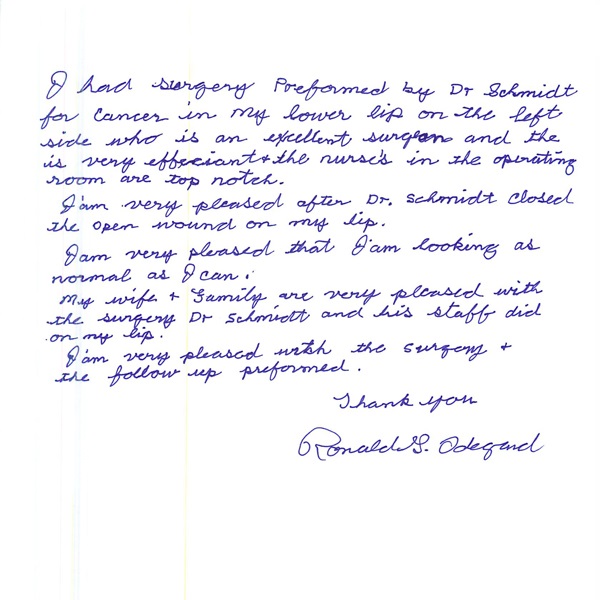 I had surgery Preformed by Dr Schmidt
for Cancer in my lower lip on the left
side who is an excellent surgeon and the
is very effeciant & the nurse's in the operating
room are top notch.
I'am very pleased after Dr. Schmidt closed
the open wound on my lip.
I am very pleased that I'am looking as
normal as I can.
My wife + Family are very pleased with
the surgery Dr Schmidt and his staff did
on my lip.
I'am very pleased with the surgery +
the follow up preformed.
Thank you
Ronald G. Odegard